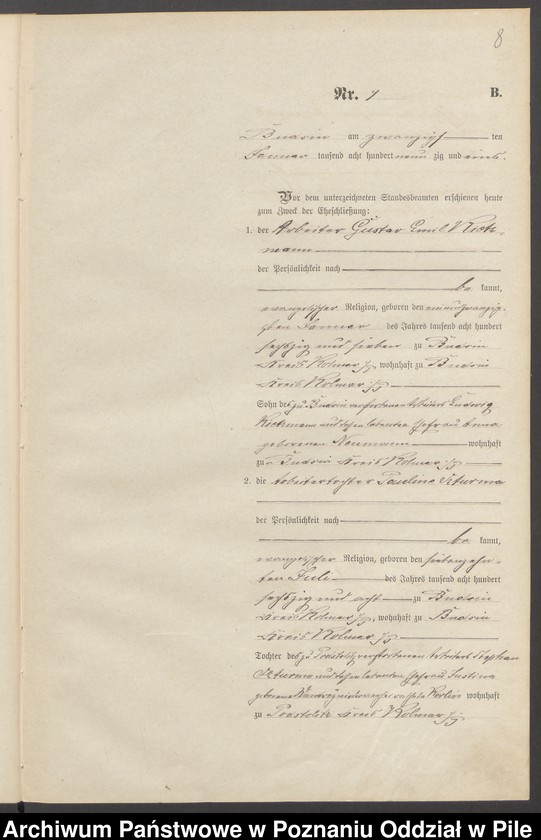 8
Nr. 7 B.
Budsin am zwanzigsten
Januar tausend acht hundert neunzig und eins.
Vor dem unterzeichneten Standesbeamten erschienen heute
zum Zweck der Eheschließung:
1. der Arbeiter Gustav Emil
mann
der Persönlichkeit nach
be kannt,
evangelischer Religion, geboren den
ten Januar des Jahres tausend acht hundert
sechszig und sieben zu Budsin
Kreis Kolmar i/P, wohnhaft zu Budsin
Kreis Kolmar i/P
Sohn des zu Budsin verstorbenen Arbeiters Ludwig
und dessen lebenden Ehefrau Anna
geborenen Neumann wohnhaft
zu Budsin Kreis Kolmar i/P
2. die Arbeitertochter Pauline
der Persönlichkeit nach
be kannt,
evangelischer Religion, geboren den siebenzehn-
ten Juli des Jahres tausend acht hundert
sechszig und acht zu Budsin
Kreis Kolmar i/P, wohnhaft zu Budsin
Kreis Kolmar i/P
Tochter des zu verstorbenen Arbeiters Stephan
und dessen lebenden Ehefrau Justina
geborene wohnhaft
zu Kreis Kolmar i/P
Archiwum Państwowe w Poznaniu Oddział w Pile